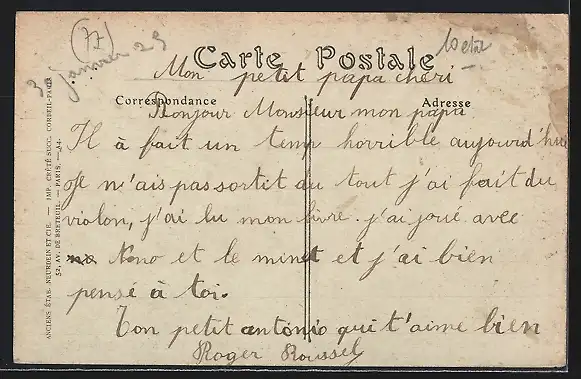 (77)
3 janvier 25
Carte Postale
Mon petit papa cheri
Correspondance
Adresse
Bonjour Monsieur mon papa
Il à fait un temp horrible aujourd'hui
Je n'ais pas sortit du tout j'ai fait du
violon, j'ai lu mon livre. j'ai joué avec
Nono et le minet et j'ai bien
pensé à toi.
Ton petit antonio qui t'aime bien
Roger Roussel
ANCIENS ÉTAB. NEURDEIN ET CIE. — IMP. CRÉTÉ SUCC. CORBEIL-PARIS
52, AV. DE BRETEUIL. — PARIS.